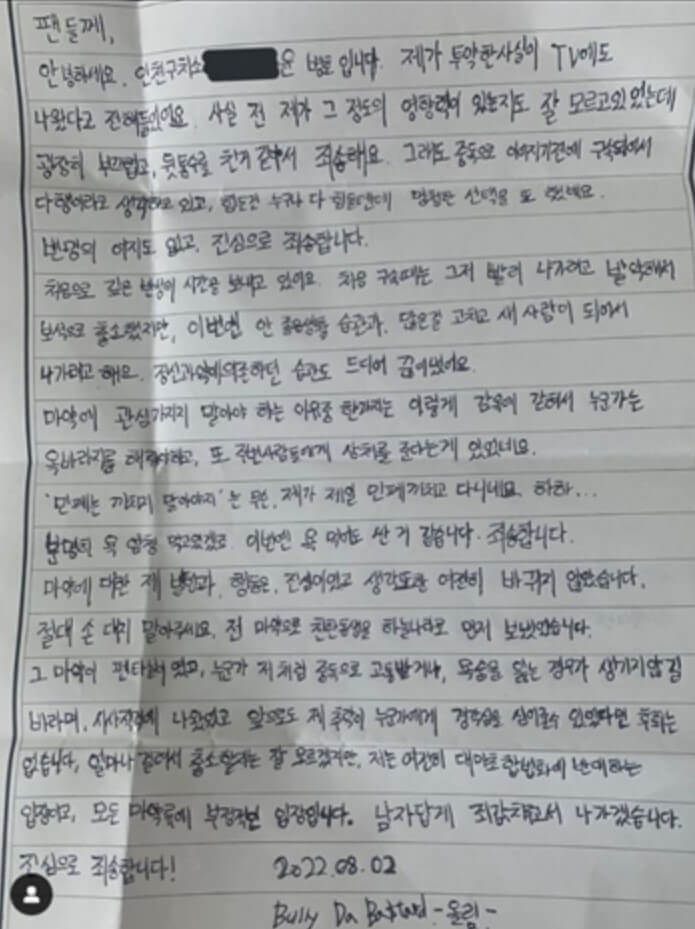 팬들께,
안녕하세요. 인천구치소 윤 병호 입니다. 제가 투약한사실이 TV에도
나왔다고 전해들었어요. 사실 전 제가 그 정도의 영향력이 있는지도 잘 모르고있었는데
굉장히 부끄럽고, 뒷통수를 친거 같아서 죄송해요. 그래도 중독으로 이어지기전에 구속되어서
다행이라고 생각하고 있고, 힘든건 누구나 다 힘들텐데 멍청한 선택을 또 했네요.
변명의 여지도 없고, 진심으로 죄송합니다.
처음으로 깊은 반성의 시간을 보내고 있어요. 처음 구속때는 그저 빨리 나가려고 발악해서
보석으로 출소했지만, 이번엔 안 좋은생활 습관과, 많은걸 고치고 새 사람이 되어서
나가려고 해요. 정신과약에의존하던 습관도 드디어 끊어냈어요.
마약에 관심가지지 말아야 하는 이유중 한가지는 이렇게 감옥에 갇혀서 누군가는
옥바라지를 해줘야하고, 또 주변사람들에게 상처를 준다는게 있었네요.
'민폐는 끼치지 말아야지'는 무슨, 제가 제일 민폐끼치고 다니네요 하하...
분명히 욕 엄청 먹고있겠죠. 이번엔 욕 먹어도 싼 거 같습니다. 죄송합니다.
마약에 대한 제 발언과, 행동은, 진심이었고 생각또한 여전히 바뀌지 않았습니다.
절대 손 대지 말아주세요. 전 마약으로 친한동생을 하늘나라로 먼저 보냈었습니다.
그 마약이 펜타닐이었고, 누군가 저처럼 중독으로 고통받거나, 목숨을 잃는 경우가 생기지않길
바라며, 시사직격에 나왔었고 앞으로도 제 추락이 누군가에게 경각심을 심어줄수 있었다면 후회는
없습니다. 얼마나 걸려서 출소할지는 잘 모르겠지만, 저는 여전히 대마초합법화에 반대하는
입장이고, 모든 마약류에 부정적인 입장입니다. 남자답게 죄값치르고서 나가겠습니다.
진심으로 죄송합니다! 2022.08.02
Bully Da Ba$tard -올림-